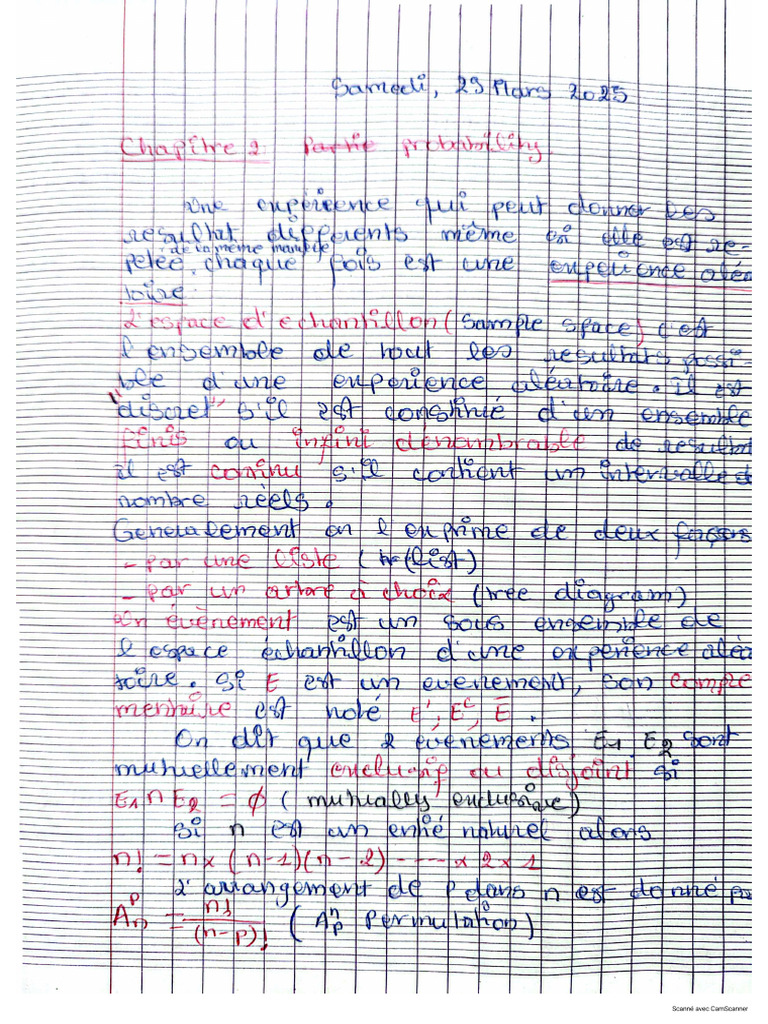 Samedi, 29 Mars 2025
Chapitre 2 Partie probability
Une expérience qui peut donner des
resultat différents même si elle est re-
de la même manière
petée, chaque fois est une expérience aléa
toire.
L'espace d'echantillon (sample space) c'est
l'ensemble de tout les resultats possi-
ble d'une expérience aléatoire. il est
"discret" s'il est constitué d'un ensemble
finis ou infini dénombrable de resultat
il est continu s'il contient un intervalle de
nombre réels.
Generalement on l'exprime de deux façons
- par une liste (list)
- par un arbre à choix (tree diagram)
Un évènement est un sous ensemble de
l'espace échantillon d'une expérience aléa
toire. si E est un evenement, son comple
mentaire est noté E', Eᶜ, E̅.
On dit que 2 évènements E₁ E₂ sont
mutuellement exclusif ou disjoint si
E₁ ∩ E₂ = ϕ (mutually exclusive)
Si n est un entié naturel alors
n! = n x (n-1)(n-2) ----- x 2 x 1
L'arrangement de p dans n est donné pa
Aₙᵖ = n!/(n-p)! (Aₚⁿ permutation)
Scanné avec CamScanner